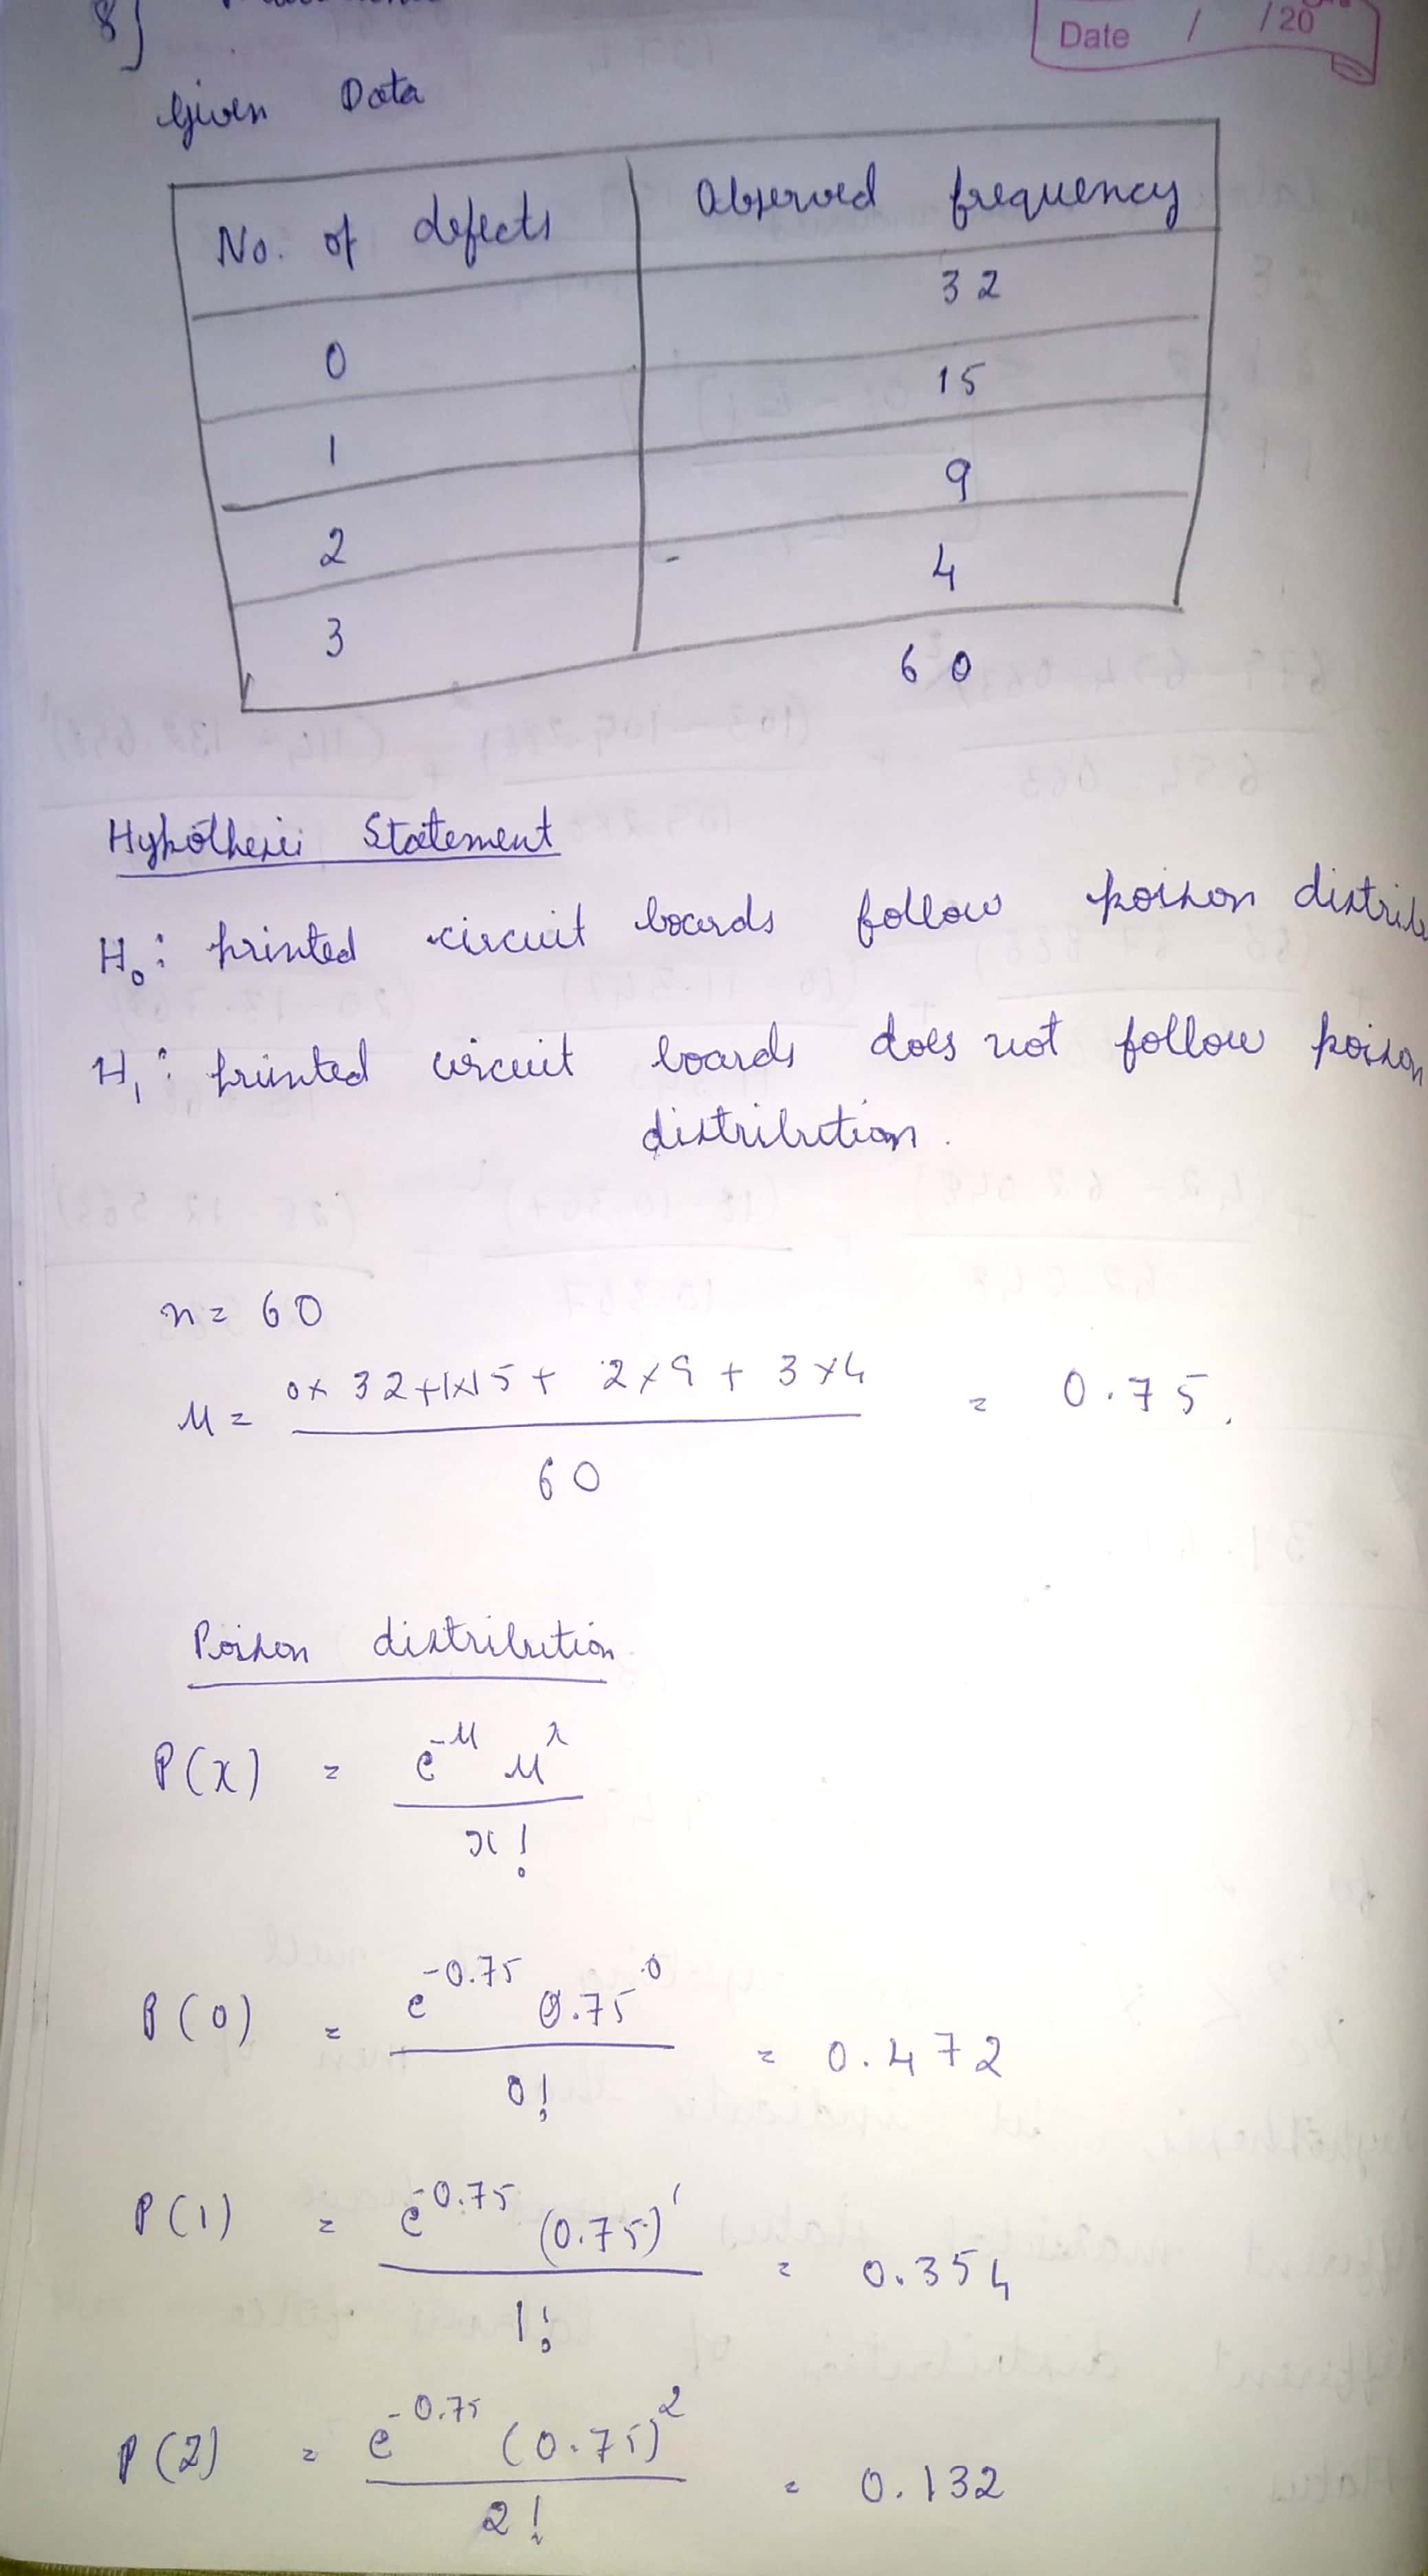 8)
Date / /20
Given Data
No. of defects Observed frequency
0 32
1 15
2 9
3 4
60
Hypothesis Statement
H₀: printed circuit boards follow poison distrib
H₁: printed circuit boards does not follow poison
distribution.
n = 60
μ = (0x 32+1x15+ 2x9 + 3x4)/60 = 0.75.
Poison distribution
P(x) = (e^-μ μ^x)/x!
P(0) = (e^-0.75 0.75^0)/0! = 0.472
P(1) = (e^-0.75 (0.75)^1)/1! = 0.354
P(2) = (e^-0.75 (0.75)^2)/2! = 0.132